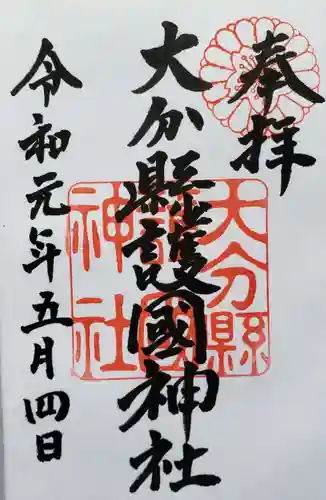 奉拝
大分縣護國神社
令和元年五月四日
大分縣
護國
神社